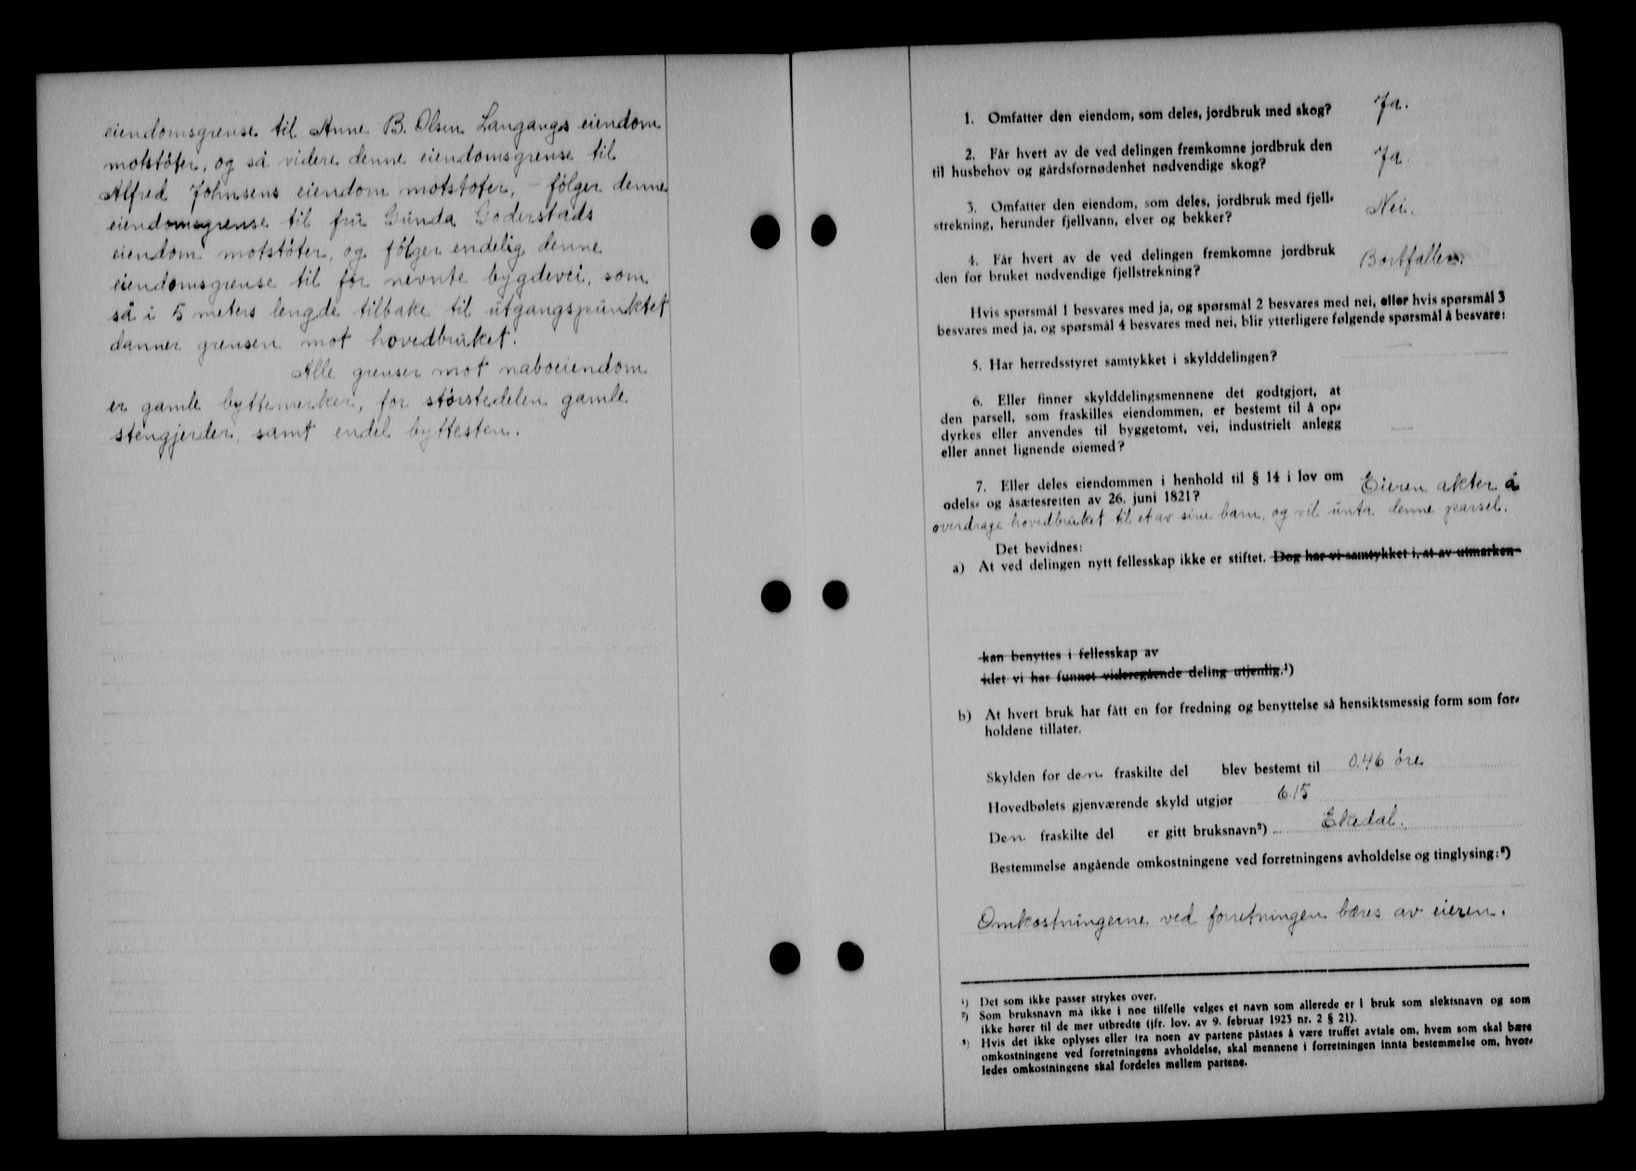 eiendomsgrense til Anne B. Olsen Langangs eiendom
motstöter, og så videre denne eiendomsgrense til
Alfred Johnsens eiendom motstöter, - fölger denne
eiendomsgrense til fru Gunda Goderstads
eiendom motstöter, og fölger endelig denne
eiendomsgrense til før nevnte bygdevei, som
så i 5 meters lengde tilbake til utgangspunktet
danner grensen mot hovedbruket.
Alle grenser mot naboeiendom
er gamle byttemerker, for störstedelen gamle
stengjerder, samt endel byttesten.
1. Omfatter den eiendom, som deles, jordbruk med skog? Ja.
2. Får hvert av de ved delingen fremkomne jordbruk den
til husbehov og gårdsfornødenhet nødvendige skog? Ja
3. Omfatter den eiendom, som deles, jordbruk med fjell-
strekning, herunder fjellvann, elver og bekker? Nei.
4. Får hvert av de ved delingen fremkomne jordbruk
den for bruket nødvendige fjellstrekning? Bortfaller.
Hvis spørsmål 1 besvares med ja, og spørsmål 2 besvares med nei, eller hvis spørsmål 3
besvares med ja, og spørsmål 4 besvares med nei, blir ytterligere følgende spørsmål å besvare:
5. Har herredsstyret samtykket i skylddelingen? —
6. Eller finner skylddelingsmennene det godtgjort, at
den parsell, som fraskilles eiendommen, er bestemt til å op-
dyrkes eller anvendes til byggetomt, vei, industrielt anlegg
eller annet lignende øiemed? —
7. Eller deles eiendommen i henhold til § 14 i lov om
odels- og åsætesretten av 26. juni 1821? Eieren akter å
overdrage hovedbruket til et av sine barn, og vil unta denne parsel.
Det bevidnes:
a) At ved delingen nytt fellesskap ikke er stiftet. Dog har vi samtykket i, at av utmarken
kan benyttes i fellesskap av
idet vi har funnet videregående deling utjenlig.¹)
b) At hvert bruk har fått en for fredning og benyttelse så hensiktsmessig form som for-
holdene tillater.
Skylden for den fraskilte del blev bestemt til 0.46 öre
Hovedbølets gjenværende skyld utgjør 6.15
Den fraskilte del er gitt bruksnavn²) Ekedal.
Bestemmelse angående omkostningene ved forretningens avholdelse og tinglysing:³)
Omkostningerne ved forretningen bæres av eieren.
¹) Det som ikke passer strykes over.
²) Som bruksnavn må ikke i noe tilfelle velges et navn som allerede er i bruk som slektsnavn og som
ikke hører til de mer utbredte (jfr. lov. av 9. februar 1923 nr. 2 § 21).
³) Hvis det ikke oplyses eller fra noen av partene påstaes å være truffet avtale om, hvem som skal bære
omkostningene ved forretningens avholdelse, skal mennene i forretningen innta bestemmelse om, hvor-
ledes omkostningene skal fordeles mellem partene.